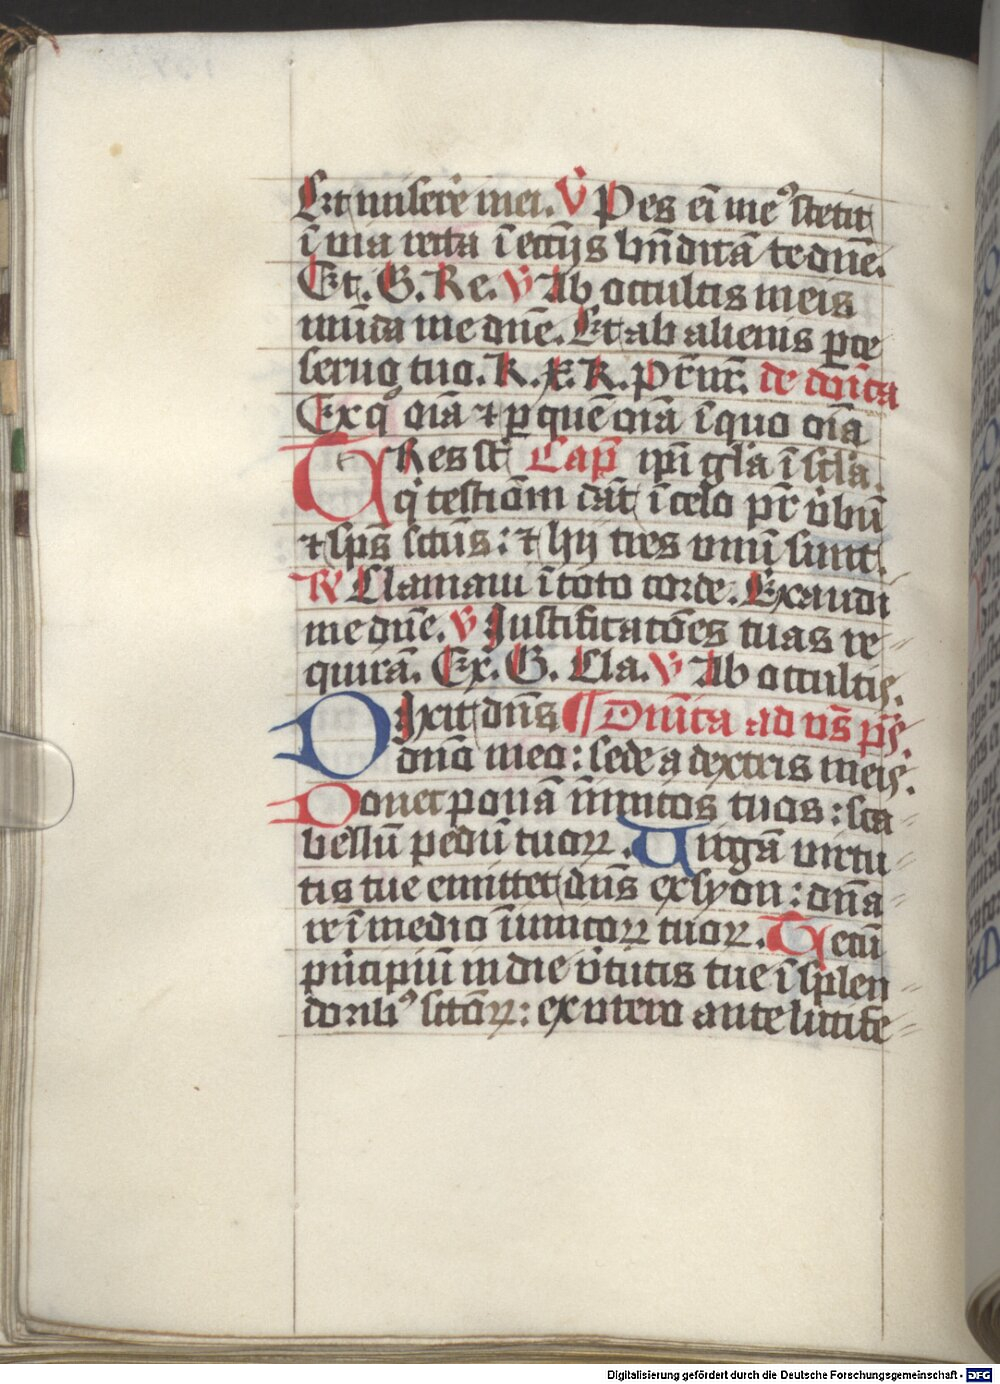 Et miserē mei. V Pes ei me⁹ stetit
ī via rcta ī eccijs bn̄dicā te dn̄e.
Et. G. Re. V Ab occultis meis
mūda me dn̄e. Et ab alienis ꝑce
seruo tuo. K. xp̄e. K. Pr̄ nr̄. de dn̄ica
Ex qͦ oīa ⁊ ꝑ quē oīa ī quo oīa
TRes st̄ Cap̄ ipī gl̄a ī scl̄a.
qi testiōm dāt ī celo pr̄ v̄bū
⁊ sp̄s sctūs : ⁊ hij tres vnū sunt.
R Clamaui ī toto corde. Exaudi
me dn̄e. V Justificatōes tuas re
quirā. Ex. G. Cla. V Ab occultis.
DIxit dn̄s ¶ Dn̄ica ad vs̄ ps̄.
dn̄o meo : sede a dextris meis.
Donec ponā inīmicos tuos : sca
bellū pedū tuoꝝ. Virgā virtu
tis tue emittet dn̄s ex syon : dn̄a
re ī medio inīmicoꝝ tuoꝝ. Tecū
pͥncipiū in die v̄tutis tue ī splen
dorib⁹ sctōꝝ : ex vtero ante lucife
Digitalisierung gefördert durch die Deutsche Forschungsgemeinschaft - DFG